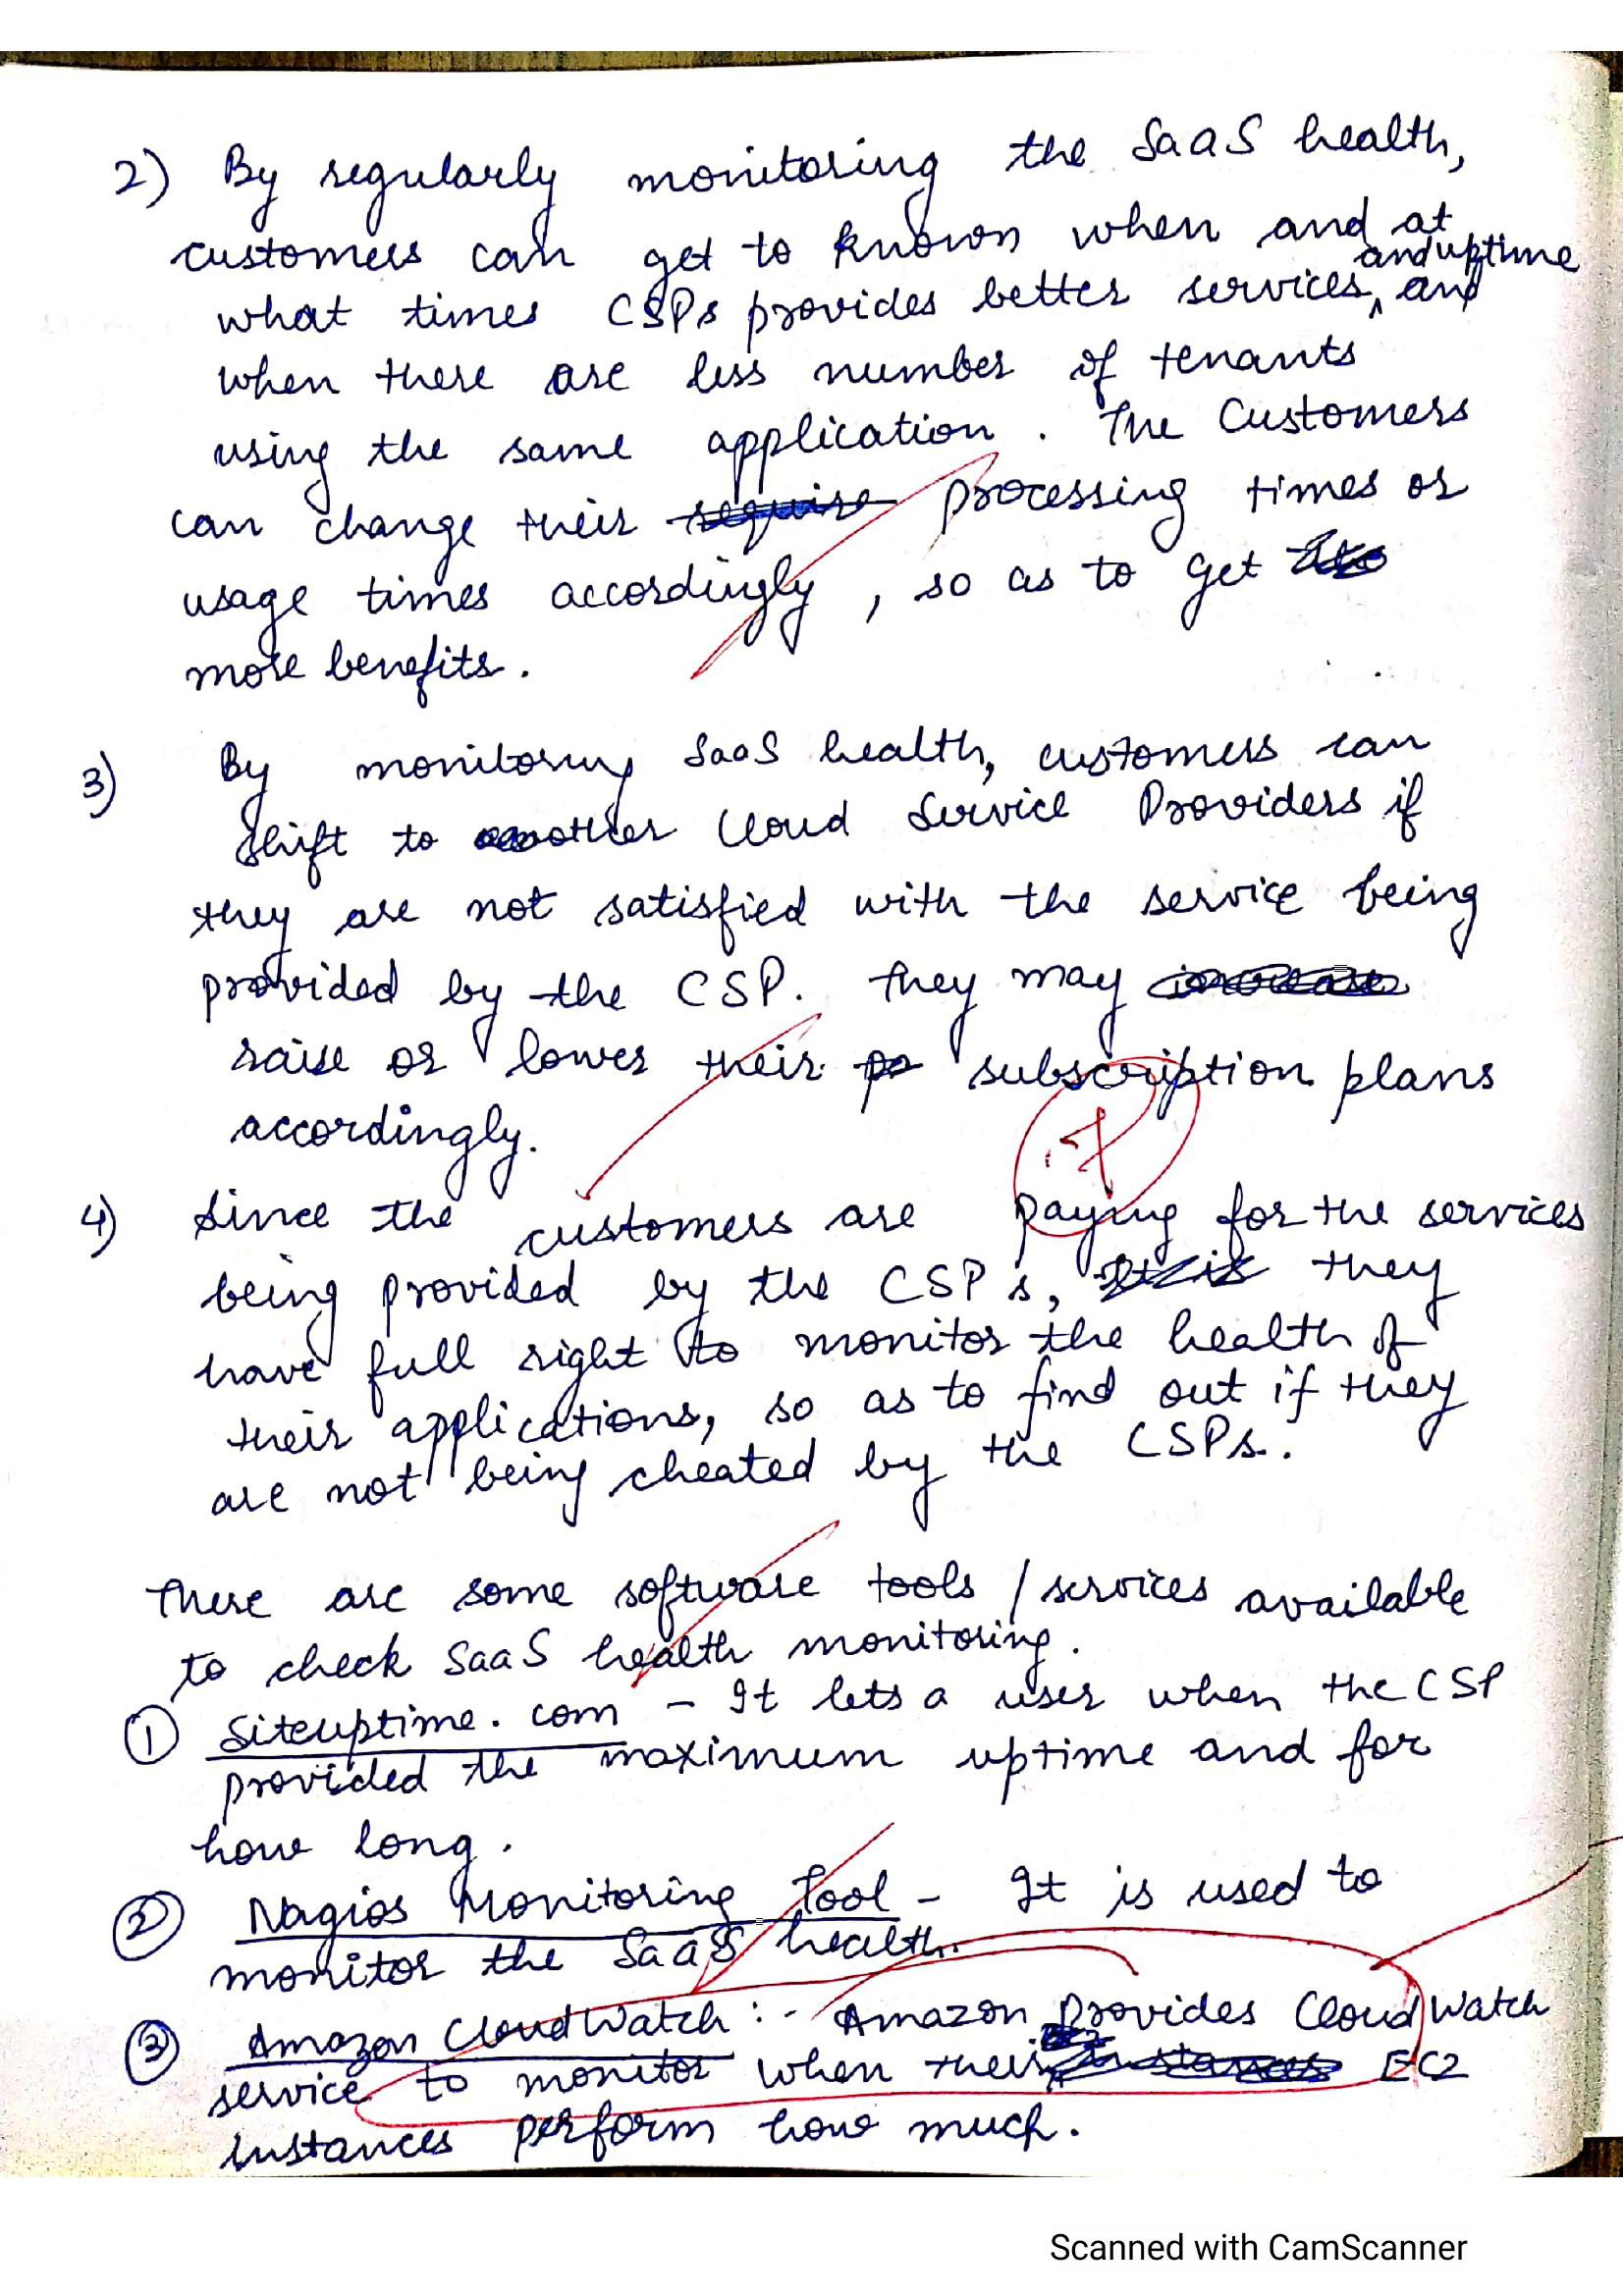 2) By regularly monitoring the SaaS health,
customers can get to known when and at
what times CSPs provides better services, and uptime and
when there are less number of tenants
using the same application. The Customers
can change their require processing times or
usage times accordingly, so as to get
more benefits.
3) By monitoring SaaS health, customers can
shift to another Cloud Service Providers if
they are not satisfied with the service being
provided by the CSP. They may increase
raise or lower their po subscription plans
accordingly.
4) Since the customers are paying for the services
being provided by the CSPs, It is they
have full right to monitor the health of
their applications, so as to find out if they
are not being cheated by the CSPs.
There are some software tools / services available
to check SaaS health monitoring.
① Siteuptime.com - It lets a user when the CSP
provided the maximum uptime and for
how long.
② Nagios Monitoring Tool - It is used to
monitor the SaaS health.
③ Amazon CloudWatch :- Amazon Provides CloudWatch
service to monitor when their instances EC2
instances perform how much.
Scanned with CamScanner